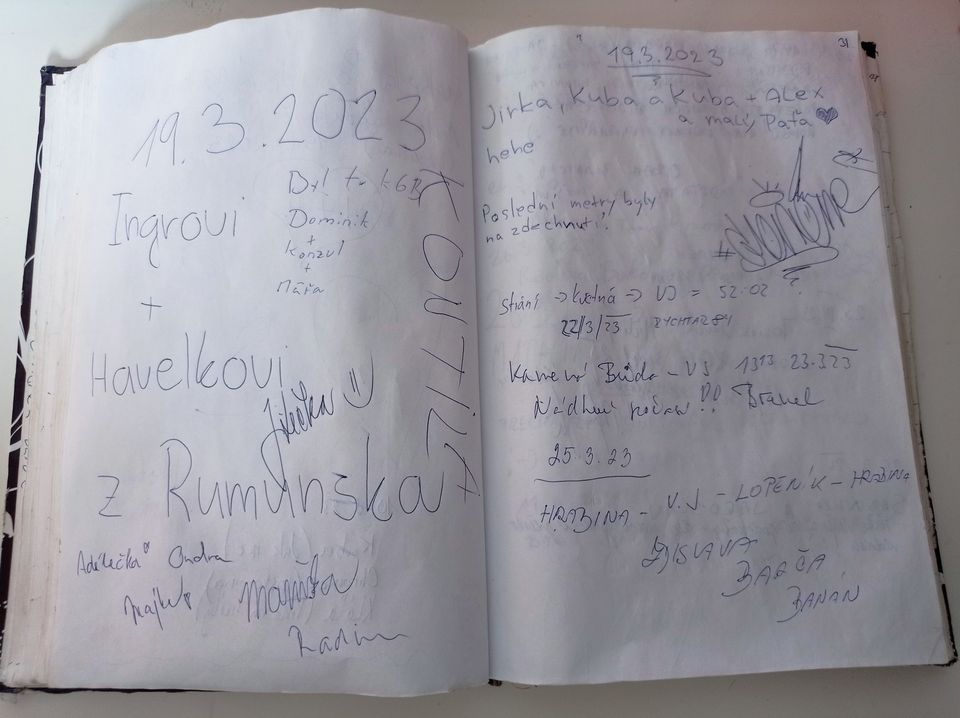 19.3.2023
Ingrovi
+
Havelkovi
z Rumunska
Byl tu
Dominik
+
Konzul
+
Máťa
Adélečka Ondra
Radim
31
19.3.2023
Jirka, Kuba a Kuba + Alex
a malý Paťa
hehe
Poslední metry byly
na zdechnutí!
Strání → Květná → VJ = 52:02
22/3/23 RYCHTAR84
Kamenná Búda - VJ 13¹³ 23.3.23
Nádherné počasí!!
25.3.23
HRABINA - V.J - LOPENÍK - HRABINA
ZDISLAVA
BARČA
BANÁN